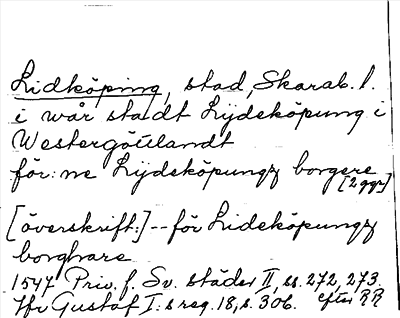 Lidköping, stad, Skarab. l.
i wår stadt Lÿdeköpung i
Westergötlandt
för:ne Lÿdeköpungz borgere
[2 ggr]
[överskrift:] -- för Lideköpungz
borghare
1547 Priv. f. Sv. städer II, ss. 272, 273.
Jfr Gustaf I:s reg. 18, s. 306. efter RR